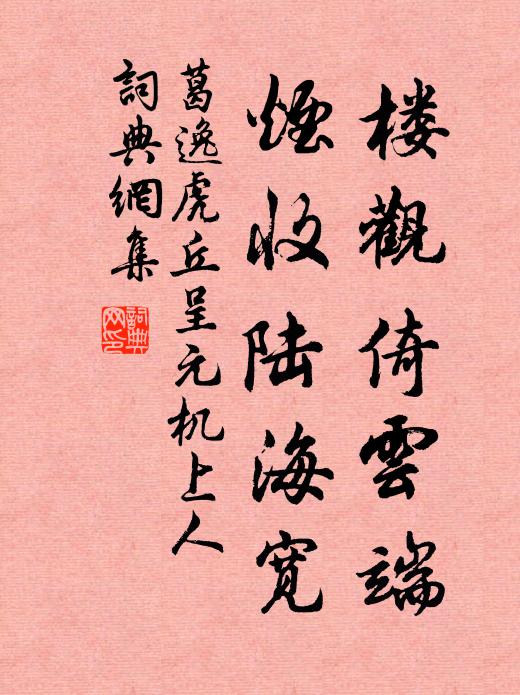 楼觀倚雲端
煙收陆海寛
葛逸虎丘呈元机上人
詞典網集
詞典网印